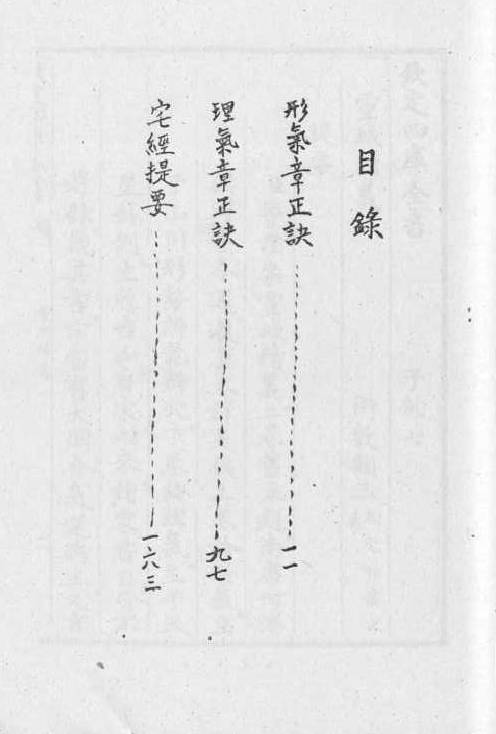 目錄
形氣章正訣……一一
理氣章正訣……九七
宅經提要……一六三